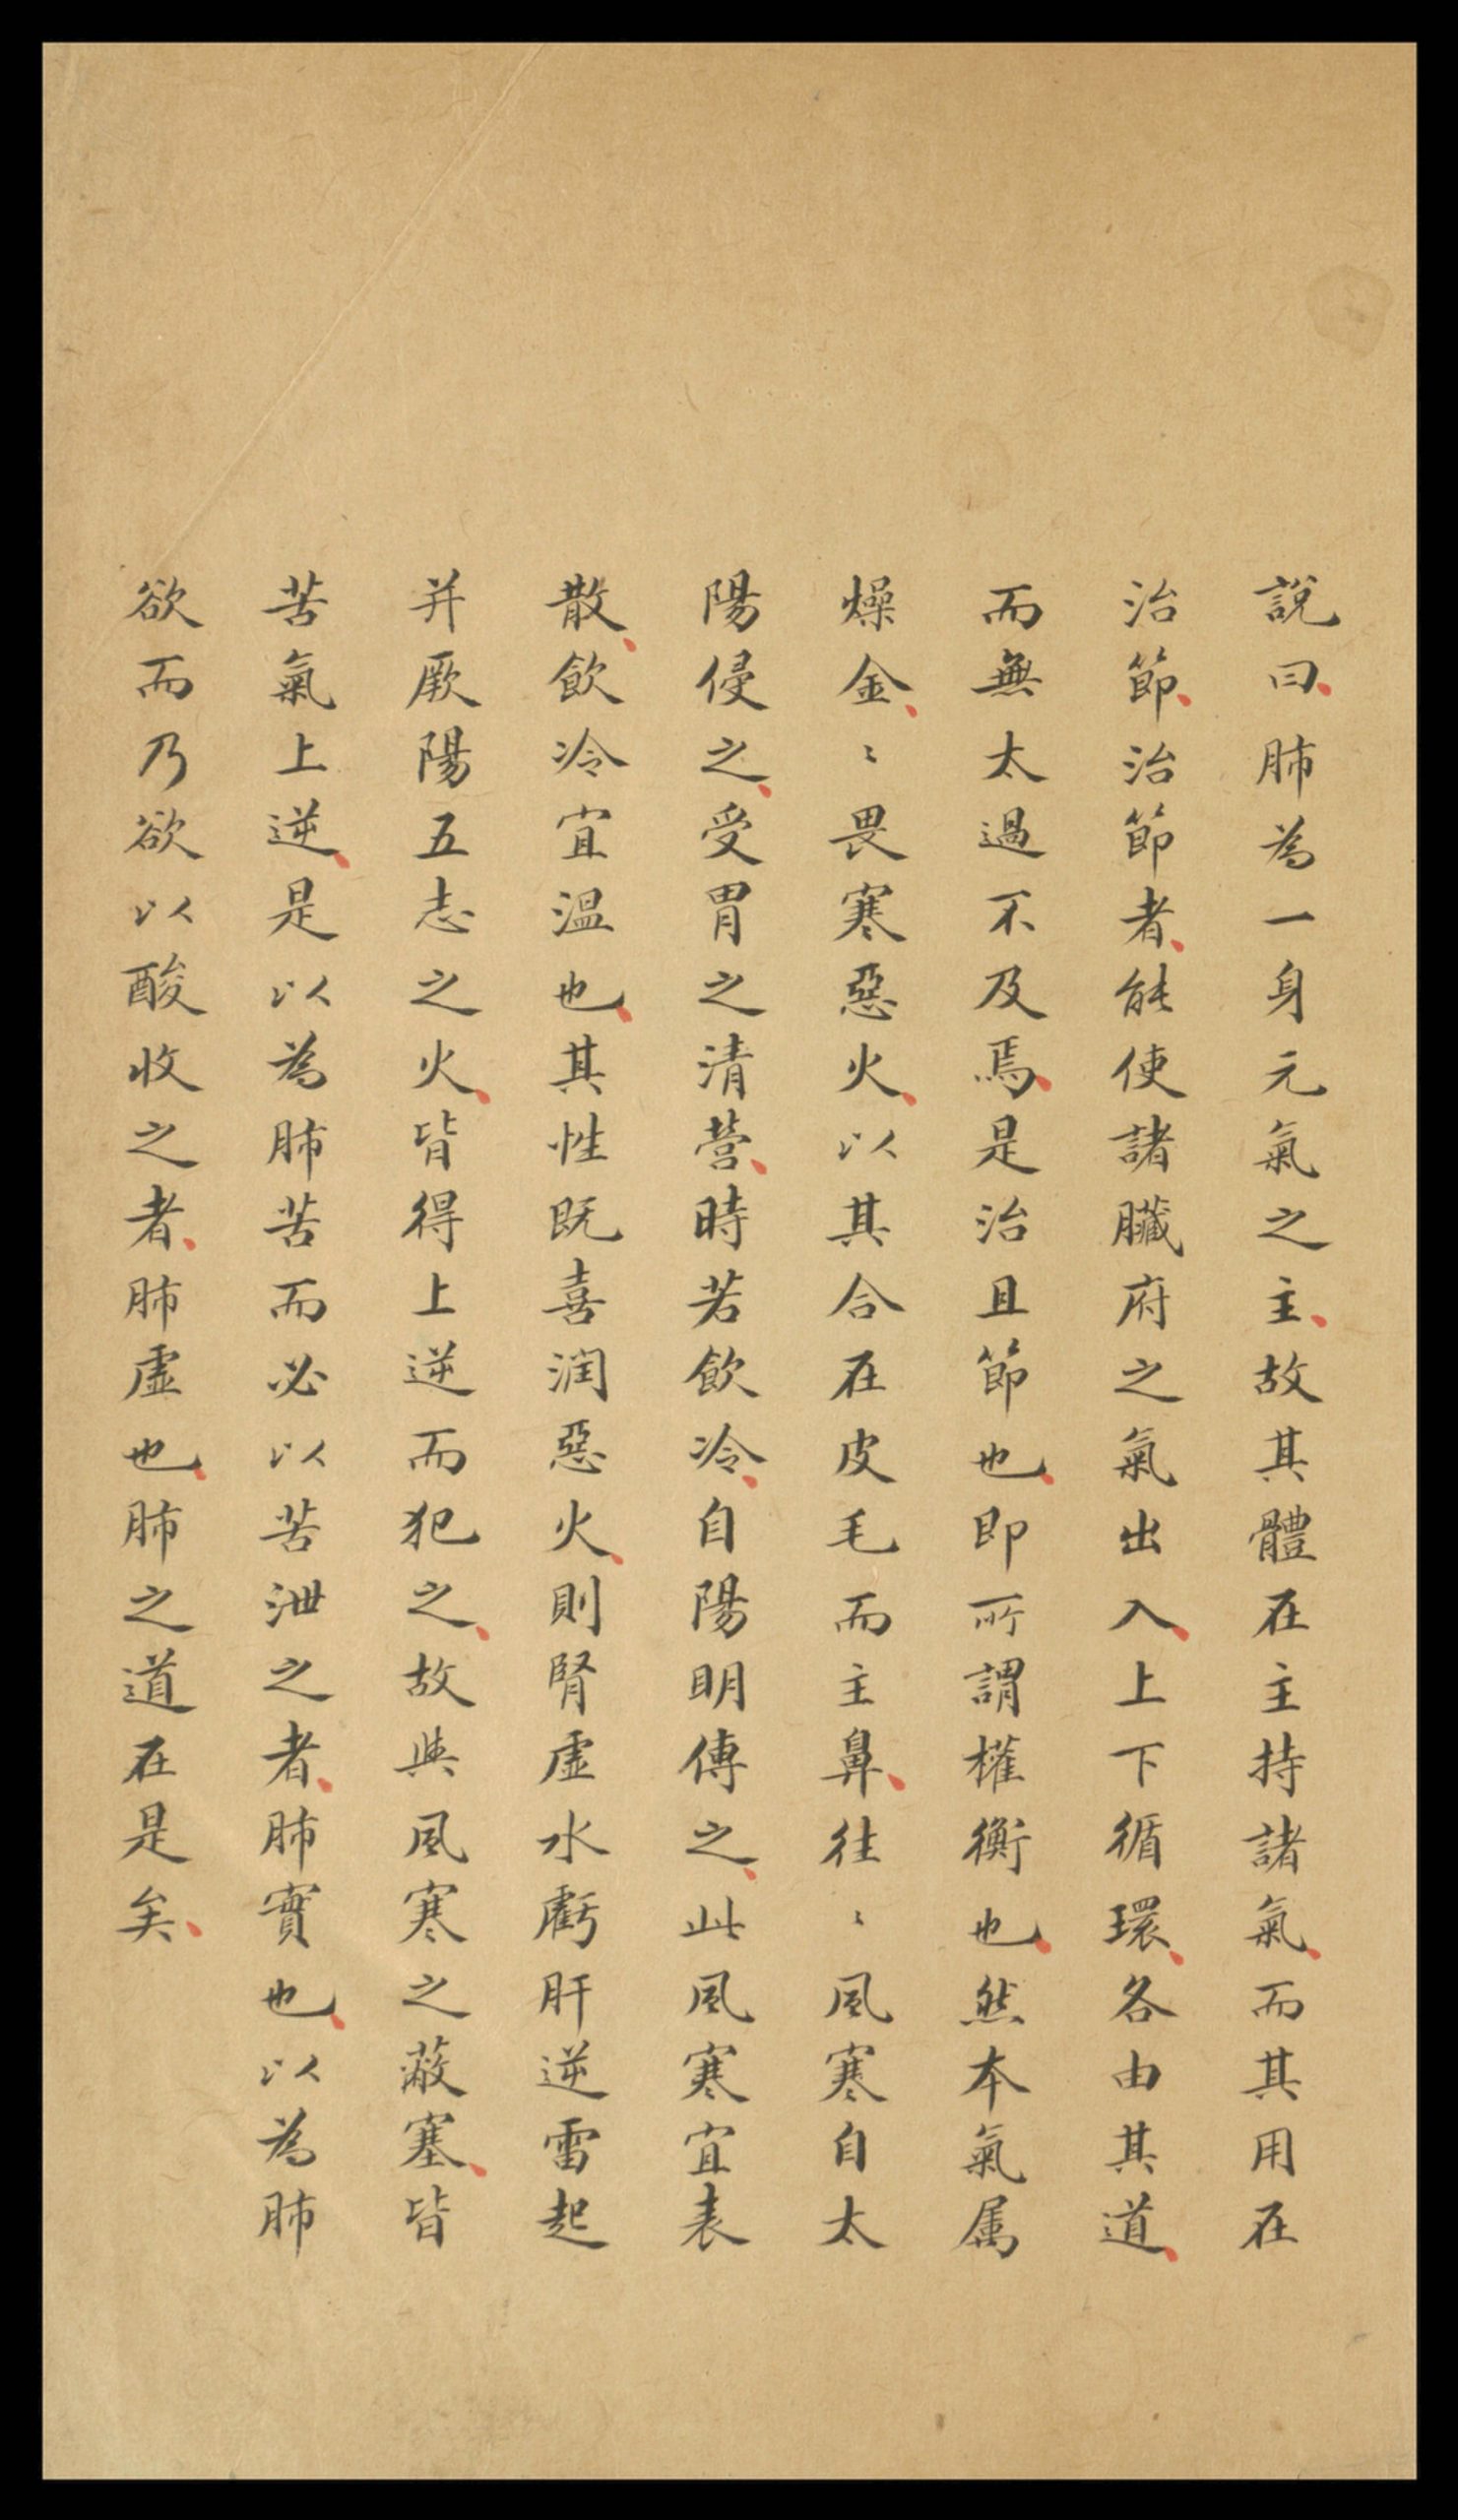 說曰、肺為一身元氣之主、故其體在主持諸氣、而其用在
治節、治節者、能使諸臟府之氣出入、上下循環、各由其道、
而無太過不及焉、是治且節也、即所謂權衡也、然本氣属
燥金、〻畏寒惡火、以其合在皮毛而主鼻、往〻風寒自太
陽侵之、受胃之清营、時若飲冷、自陽明傳之、此風寒宜表
散、飲冷宜温也、其性既喜潤惡火、則腎虛水虧肝逆雷起
并厥陽五志之火、皆得上逆而犯之、故與風寒之蔽塞、皆
苦氣上逆、是以為肺苦而必以苦泄之者、肺實也、以為肺
欲而乃欲以酸收之者、肺虛也、肺之道在是矣、